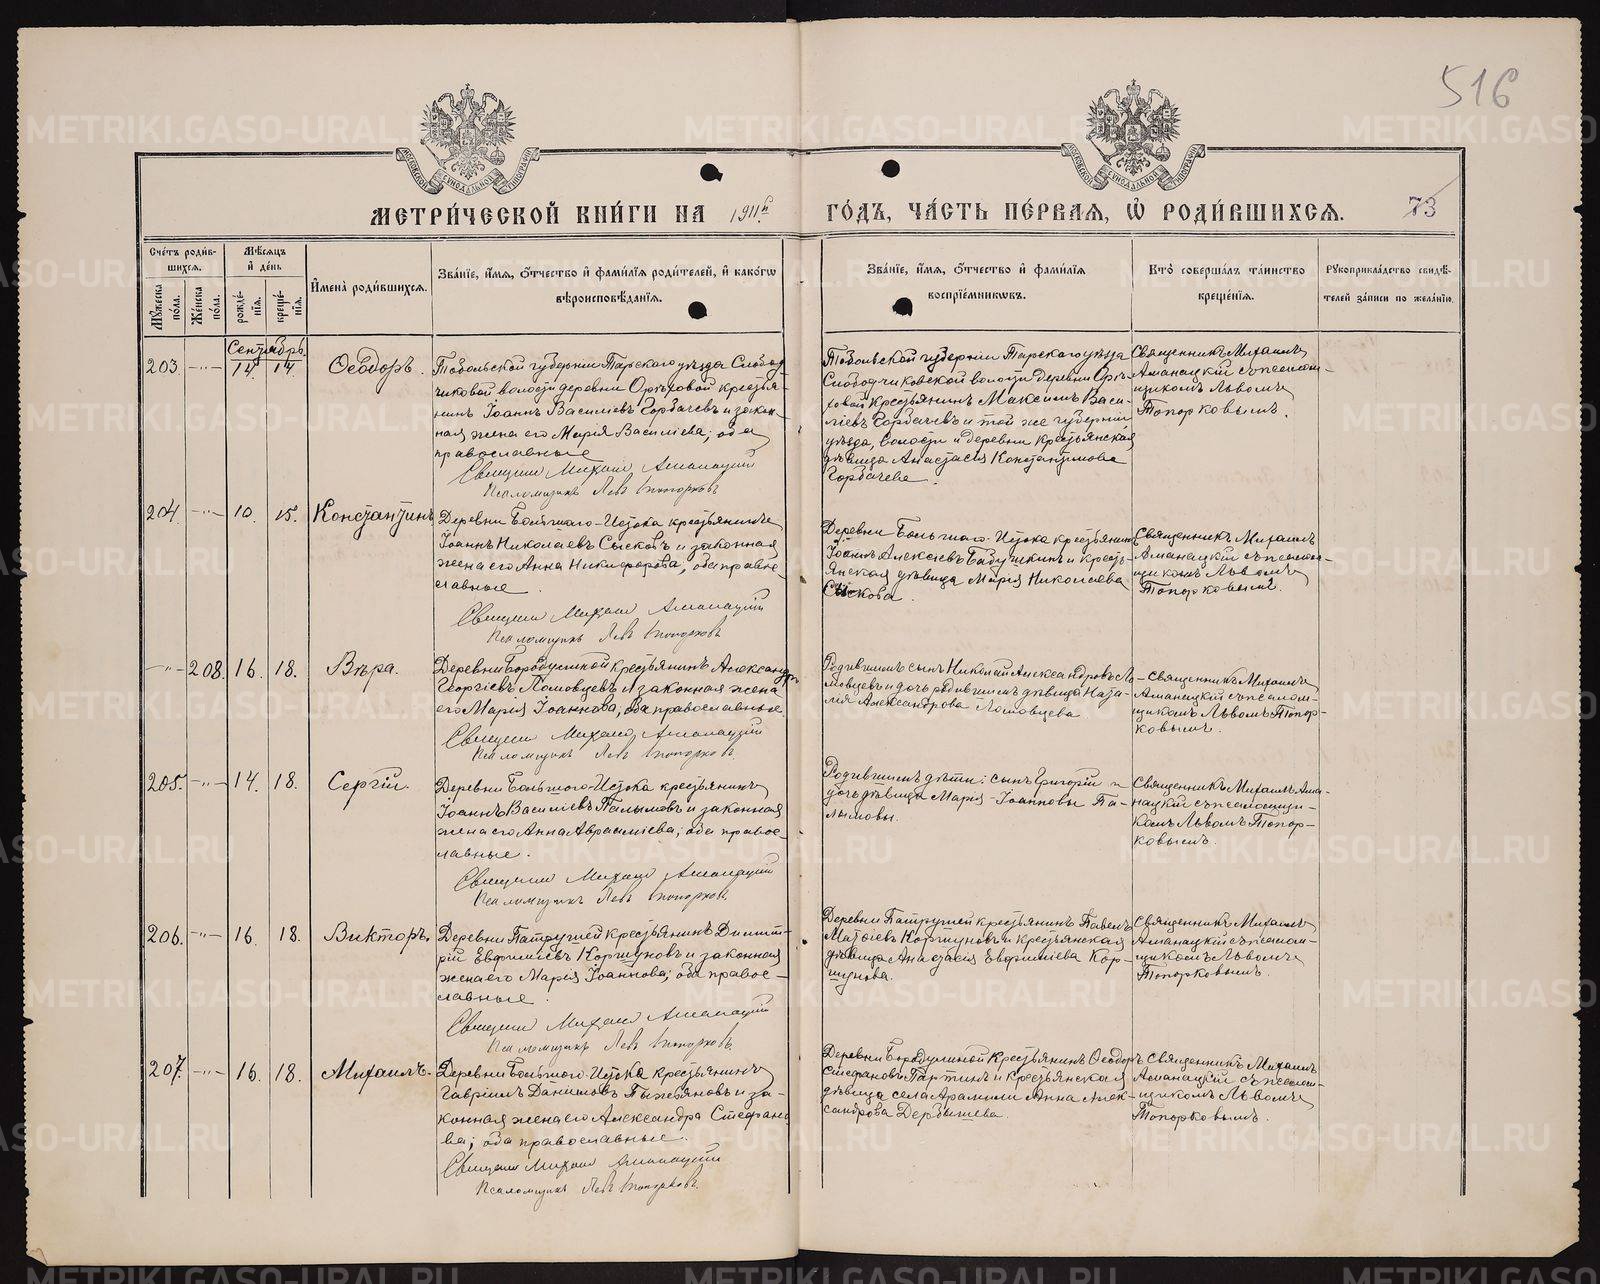 516
МЕТРИ́ЧЕСКОЙ КНИ́ГИ НА 1911й ГО́ДЪ, ЧА́СТЬ ПЕ́РВАЯ, Ѡ РОДИ́ВШИХСЯ. 73
Сче́тъ роди́вшихся.
Му́жеска по́ла.
Же́нска по́ла.
Мѣ́сяцъ и де́нь
рожде́нія.
креще́нія.
Имена̀ роди́вшихся.
Зва́ніе, и́мя, о́тчество и фами́лія роди́телей, и како́гѡ
вѣроисповѣ́данія.
Зва́ніе, и́мя, о́тчество и фами́лія
воспріе́мникѡвъ.
Кто̀ соверша́лъ та́инство
креще́нія.
Рукоприкла́дство свидѣ́-
телей за́писи по жела́нію.
Сентябрь
203 —"— 14. 14 Ѳеодоръ.
Тобольской губерніи Тарскаго уѣзда Слобод
чиковой волости деревни Орѣховой крестья-
нинъ Іоаннъ Василіевъ Горбачевъ и закон-
ная жена его Марія Василіева; оба
православные
Священ Михаил Аманацкій
Псаломщикъ Левъ Топорковъ
Тобольской губерніи Тарскаго уѣзда
Слободчиковской волости деревни Орѣ-
ховой Крестьянинъ Максимъ Васи-
ліевъ Горбачевъ и той же губерніи
уѣзда, волости и деревни крестьянская
дѣвица Анастасія Константинова
Горбачева.
Священникъ Михаилъ
Аманацкій съ псалом-
щикомъ Львомъ
Топорковымъ.
204 —"— 10. 15. Константинъ
Деревни Большаго-Истока крестьянинъ
Іоаннъ Николаевъ Сысковъ и законная
жена его Анна Никифорова; оба право-
славные.
Священ Михаил Аманацкій
Псаломщикъ Левъ Топорковъ
Деревни Большаго-Истока крестьянинъ
Іоаннъ Алексіевъ Бабушкинъ и кресть-
янская дѣвица Марія Николаева
Сыскова.
Священникъ Михаилъ
Аманацкій съ псалом-
щикомъ Львомъ
Топорковымъ.
—"— 208. 16. 18. Вѣра.
Деревни Бородулиной крестьянинъ Александръ
Георгіевъ Ломовцевъ и законная жена
его Марія Іоаннова, оба православные.
Священ Михаил Аманацкій
Псаломщикъ Левъ Топорковъ.
Родившихъ сынъ Николай Александровъ Ло-
мовцевъ и дочь родившихъ дѣвица Ната-
лія Александрова Ломовцева
Священникъ Михаилъ
Аманацкій съ псалом-
щикомъ Львомъ Топор-
ковымъ.
205. —"— 14. 18. Сергій.
Деревни Большого-Истока крестьянинъ
Іоаннъ Василіевъ Палымовъ и законная
жена его Анна Авраамиева; оба право-
славные.
Священ Михаил Аманацкій
Псаломщикъ Левъ Топорковъ.
Родившихъ дѣти: сынъ Григорій и
дочь дѣвица Марія Іоанновы Па-
лымовы.
Священникъ Михаилъ Ама-
нацкій съ псаломщи-
комъ Львомъ Топор-
ковымъ.
206. —"— 16. 18. Викторъ.
Деревни Патрушей крестьянинъ Дмит-
рій Евфиміевъ Коршуновъ и законная
жена его Марія Іоаннова; оба право-
славные.
Священ Михаил Аманацкій
Псаломщикъ Левъ Топорковъ.
Деревни Патрушей крестьянинъ Павелъ
Матѳіевъ Коршуновъ и крестьянская
дѣвица Анастасія Евфиміева Кор-
шунова.
Священникъ Михаилъ
Аманацкій съ псалом-
щикомъ Львомъ
Топорковымъ.
207. —"— 16. 18. Михаилъ.
Деревни Большого-Истока крестьянинъ
Гавріилъ Даниловъ Пыжьяновъ и за-
конная жена его Александра Стефано
ва; оба православные.
Священ Михаил Аманацкій
Псаломщикъ Левъ Топорковъ.
Деревни Бородулиной Крестьянинъ Ѳеодоръ
Стефановъ Партинъ и крестьянская
дѣвица села Арамили Анна Алек-
сандрова Дерябышева.
Священникъ Михаилъ
Аманацкій съ псалом-
щикомъ Львомъ
Топорковымъ.
METRIKI.GASO-URAL.RU